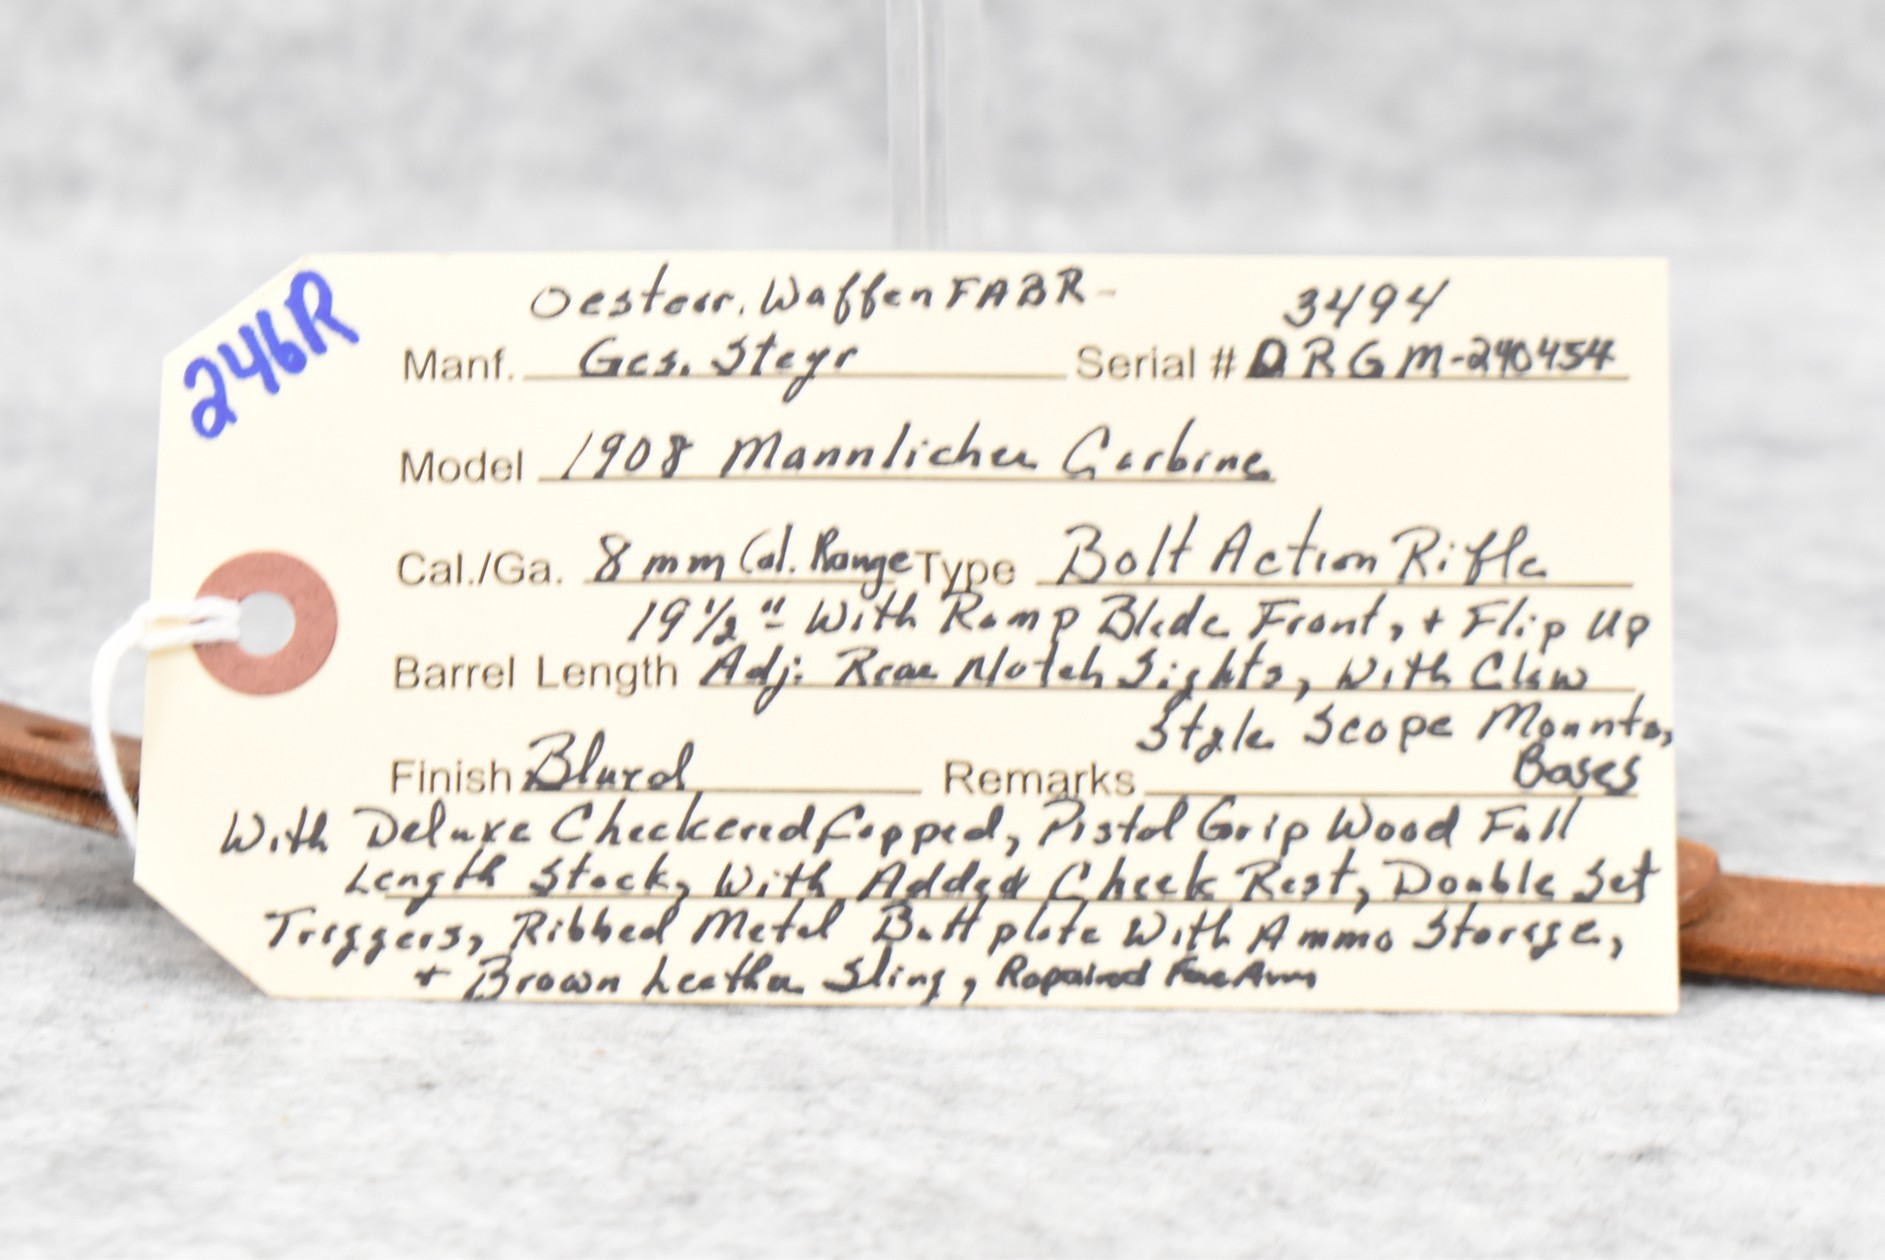 246R
Oesterr. Waffen FABR-
Manf. Ges. Steyr
3494
Serial # DRGM-240454
Model 1908 Mannlicher Carbine
Cal./Ga. 8mm Cal. Range Type Bolt Action Rifle
19 1/2" With Ramp Blade Front, + Flip Up
Barrel Length Adj. Rear Notch Sights, With Claw
Style Scope Mounts,
Finish Blued Remarks Bases
With Deluxe Checkered Capped, Pistol Grip Wood Full
Length Stock, With Added Cheek Rest, Double Set
Triggers, Ribbed Metal Buttplate With Ammo Storage,
+ Brown Leather Sling, Repaired ForeArm